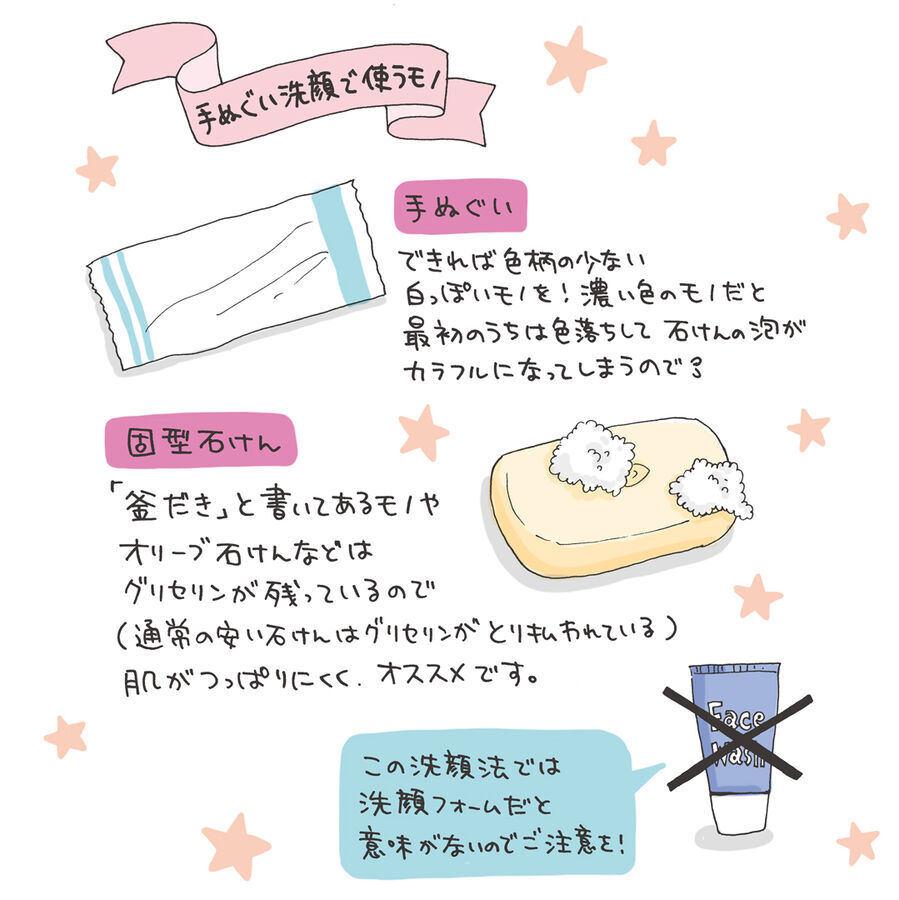 手ぬぐい洗顔で使うモノ
手ぬぐい
できれば色柄の少ない
白っぽいモノを!濃い色のモノだと
最初のうちは色落ちして 石けんの泡が
カラフルになってしまうので
固型石けん
「釜だき」と書いてあるモノや
オリーブ石けんなどは
グリセリンが残っているので
(通常の安い石けんはグリセリンがとり払われている)
肌がつっぱりにくく、オススメです。
Face
Wash
この洗顔法では
洗顔フォームだと
意味がないのでご注意を!